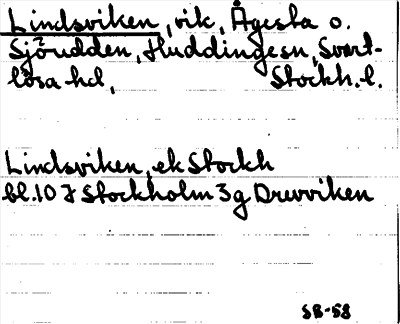 Lindsviken, vik, Ågesta o.
Sjöudden, Huddinge sn, Svart-
lösa hd, Stockh. l.
Lindsviken, ek Stockh
bl. 10 I Stockholm 3g Drevviken
SB-58